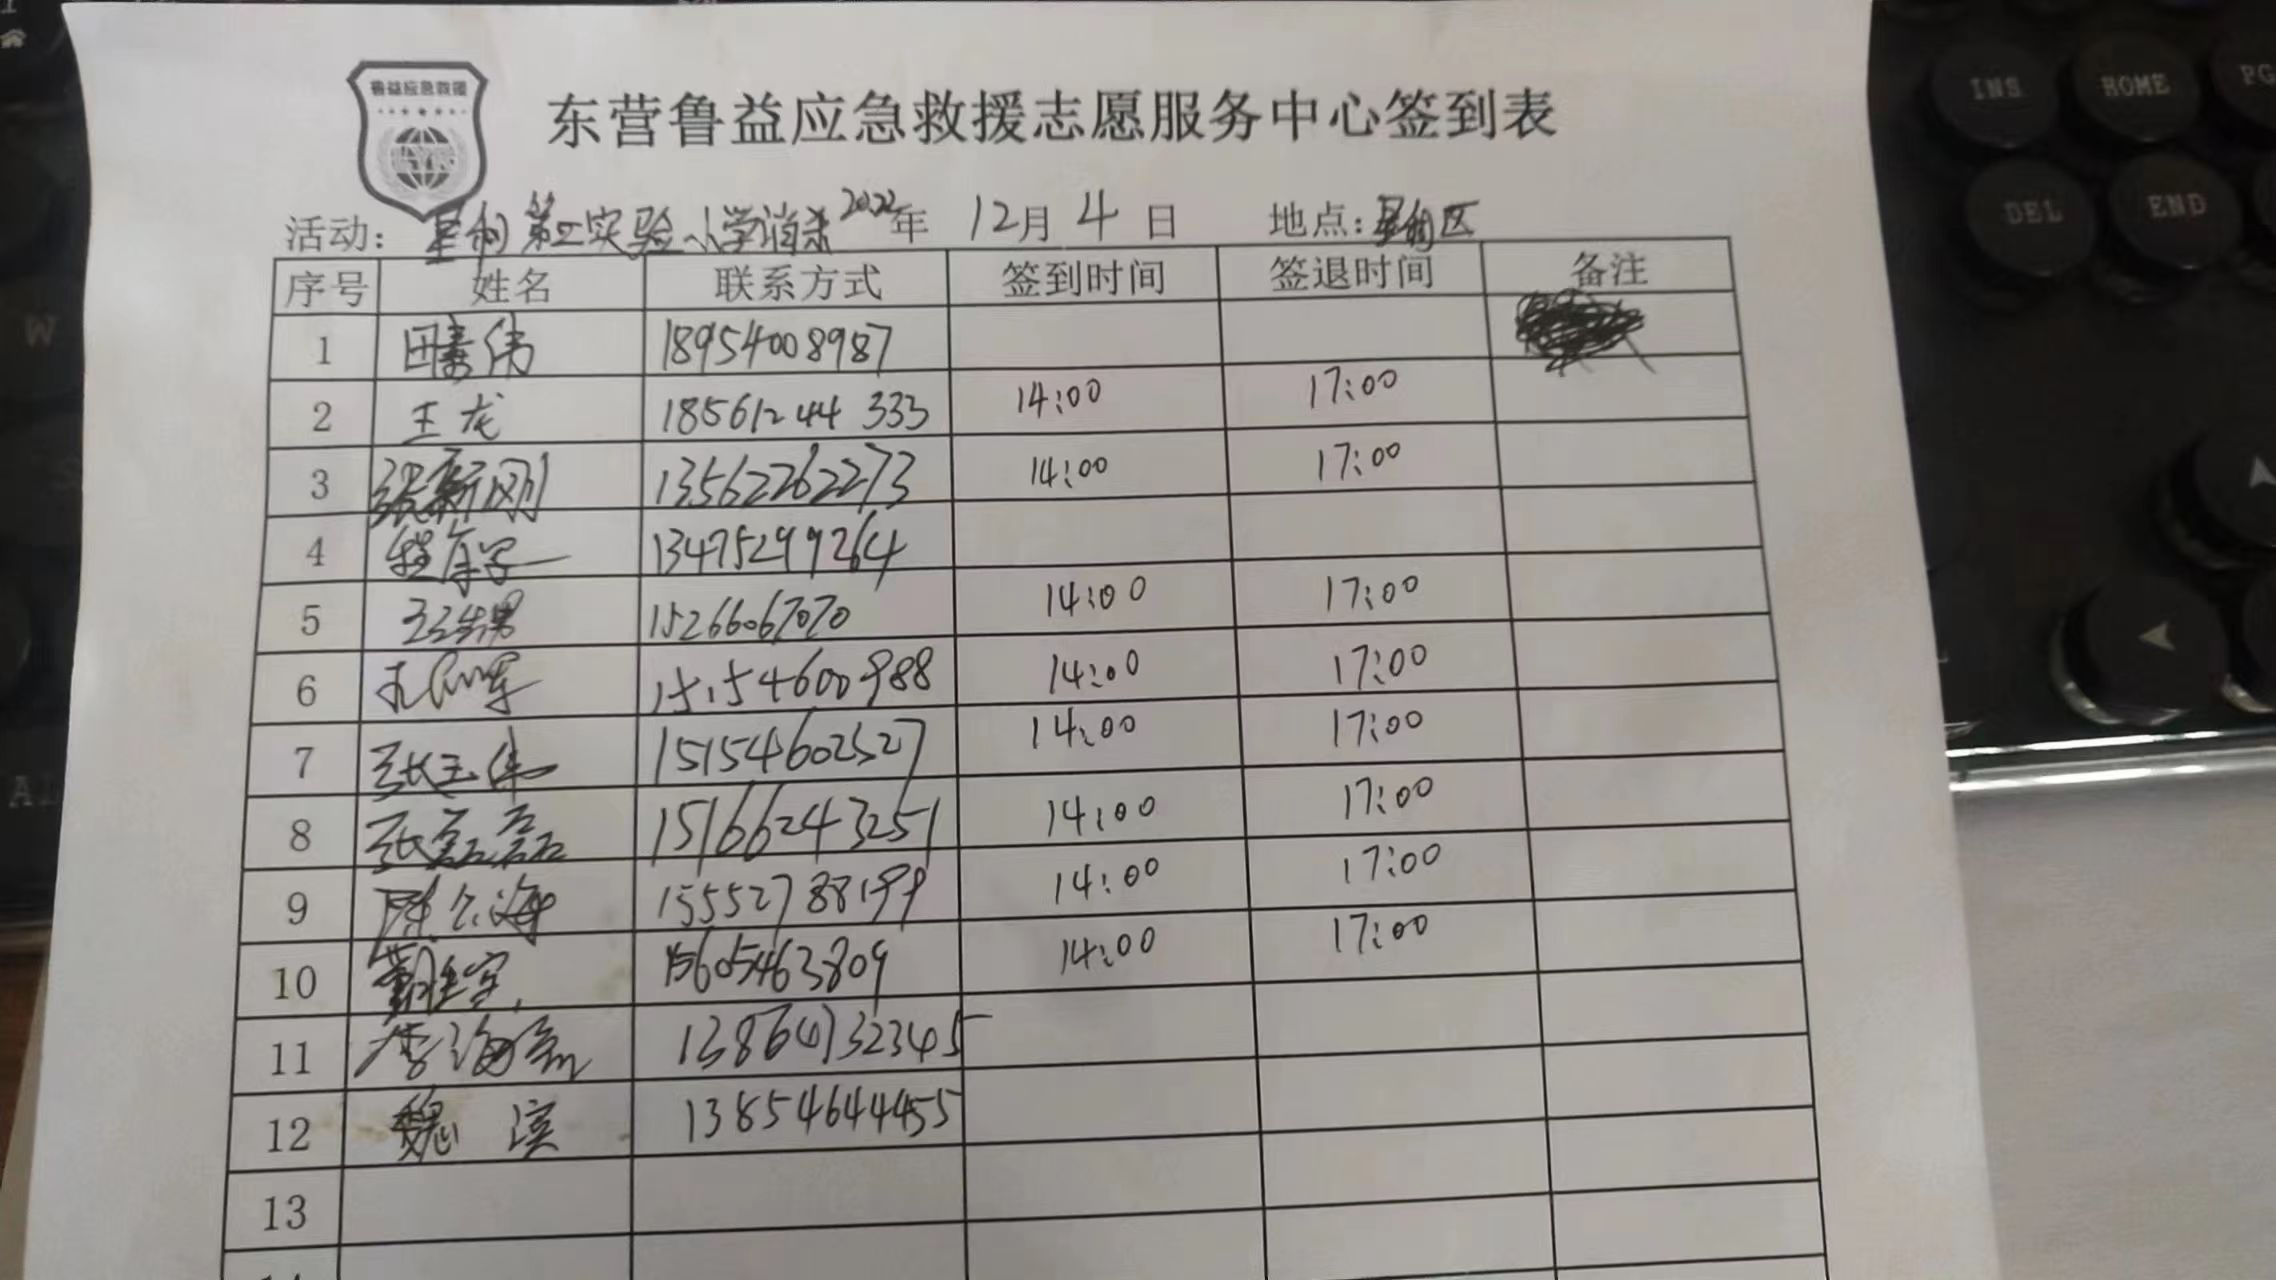 鲁益应急救援
东营鲁益应急救援志愿服务中心签到表
活动: 垦利第二实验小学消杀 2022年 12月 4 日 地点: 垦利区
序号 姓名 联系方式 签到时间 签退时间 备注
1 田素伟 18954008987
2 王龙 18561244333 14:00 17:00
3 张新刚 13562262273 14:00 17:00
4 13475299264
5 15266067070 14:00 17:00
6 15154600988 14:00 17:00
7 张玉伟 15154602527 14:00 17:00
8 张磊磊 15166243251 14:00 17:00
9 15552788199 14:00 17:00
10 15605463809 14:00 17:00
11 13864732345
12 魏滨 13854644455
13
INS HOME PG
DEL END
W